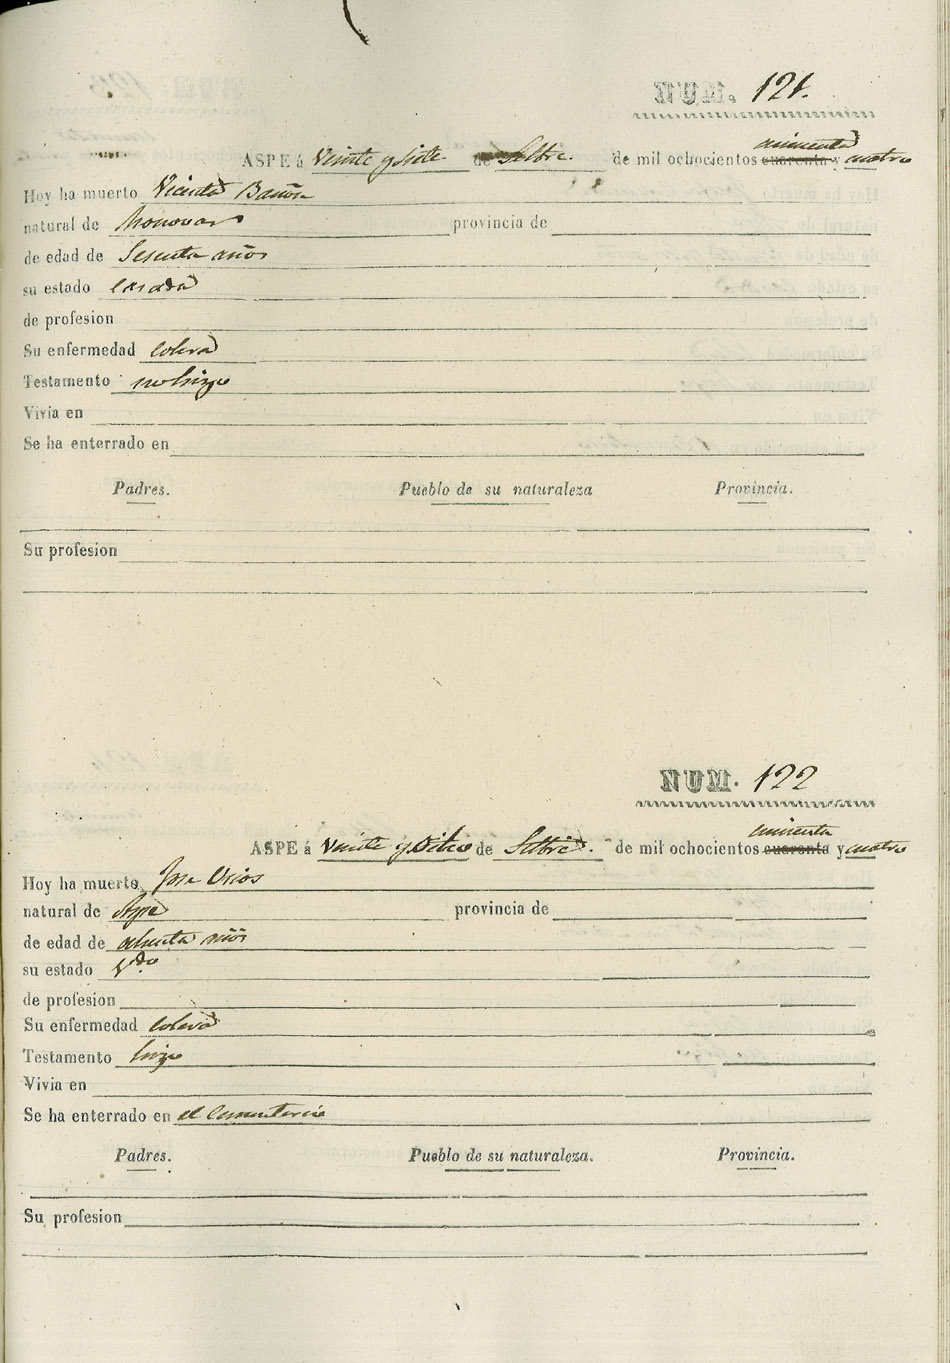 NUM. 121.
cincuenta
ASPE á Veinte y siete de Setbre. de mil ochocientos cuarenta y cuatro
Hoy ha muerto Vicenta Bañon
natural de Monovar provincia de
de edad de Sesenta años
su estado casada
de profesion
Su enfermedad colera
Testamento no hizo
Vivia en
Se ha enterrado en
Padres. Pueblo de su naturaleza Provincia.
Su profesion
NUM. 122
cincuenta
ASPE á Veinte y Ocho de Setbre. de mil ochocientos cuarenta y cuatro
Hoy ha muerto Jose
natural de Aspe provincia de
de edad de años
su estado Vdo
de profesion
Su enfermedad colera
Testamento hizo
Vivia en
Se ha enterrado en el Cementerio
Padres. Pueblo de su naturaleza. Provincia.
Su profesion